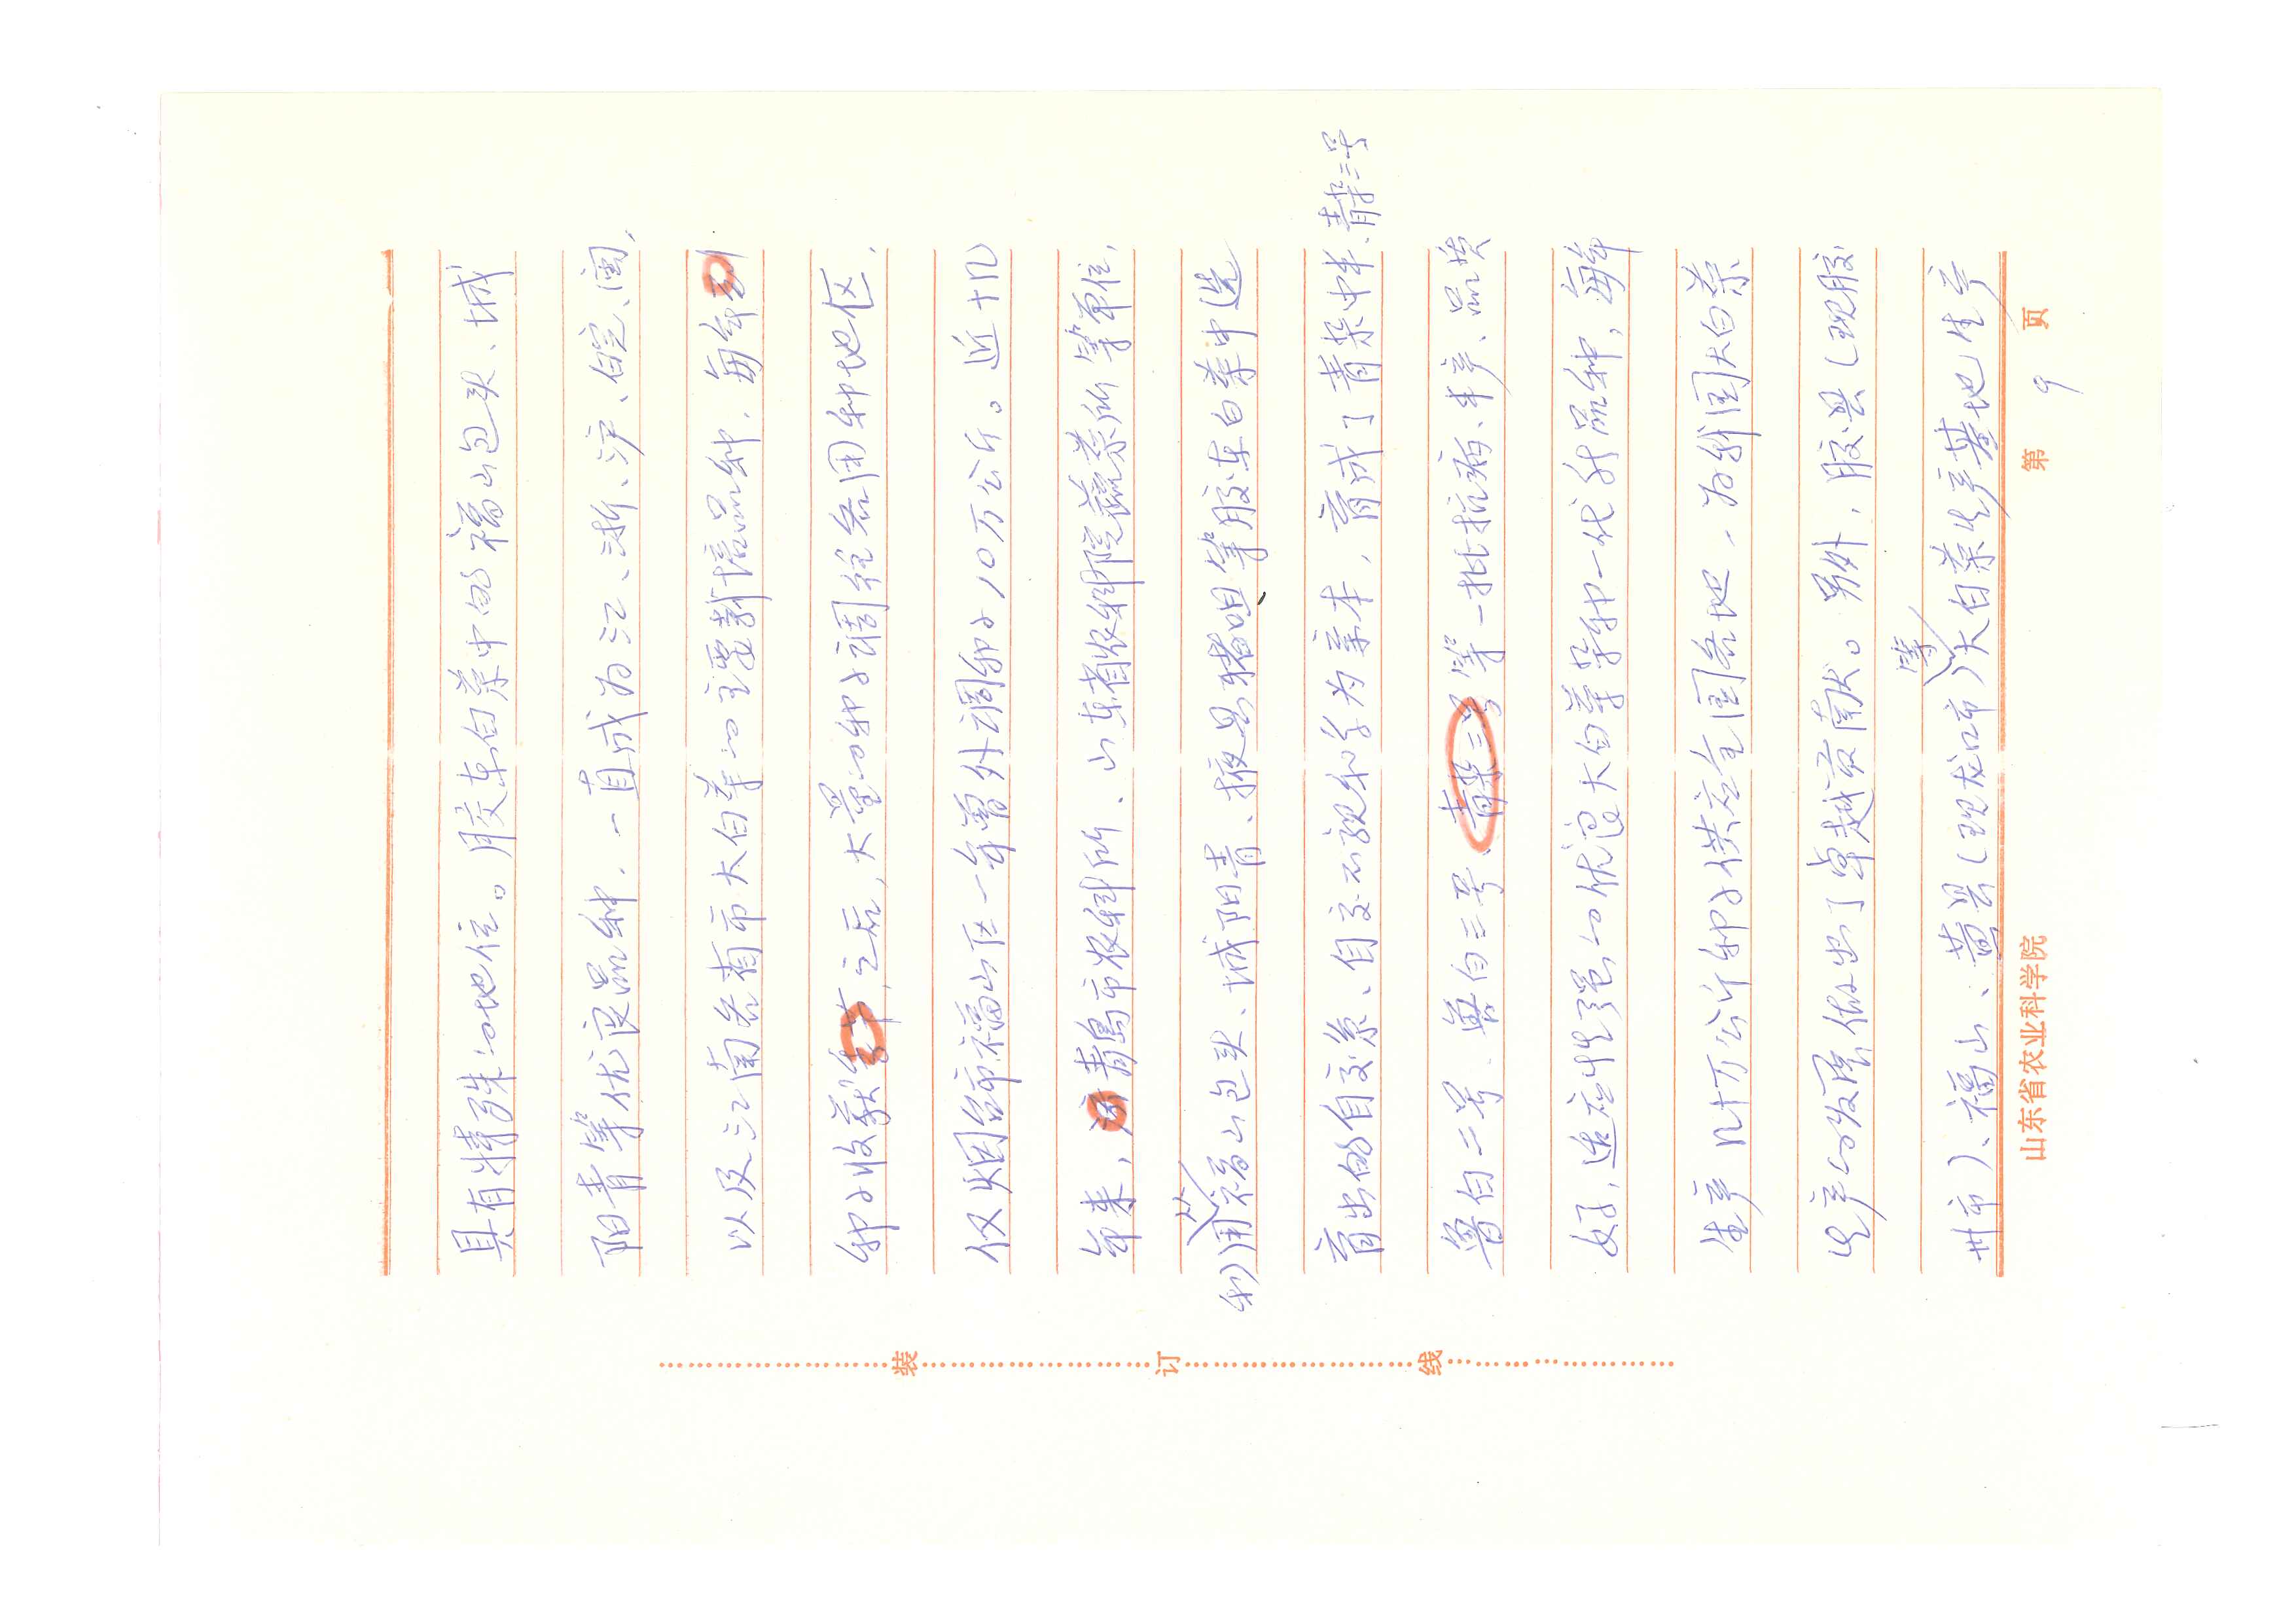 具有特殊的地位。胶东白菜中的福山包头、城
阳青等优良品种,一直成为江、浙、沪、皖、闽,
以及江南各省市大白菜的主要栽培品种,每年
种子收获之后,大量的种子调往各用种地区,
仅烟台市福山区一年曾外调种子10万公斤。近十几
年来,青岛市农科所、山东省农科院蔬菜所等单位,
利用福山包头、城阳青、掖县猪咀等胶东白菜中选
育出的自交系、自交不亲和系为亲本,育成了青杂中丰、青杂三号
鲁白二号、鲁白三号、青杂三号等一批抗病、丰产、品质
好,适应性强的优良大白菜杂种一代新品种,每年
生产几十万公斤种子供应全国各地,为我国大白菜
生产的发展做出了卓越贡献。另外,胶县(现胶
州市)、福山、黄县(现龙口市)等大白菜生产基地生产
山东省农业科学院 第 9 页
装 订 线